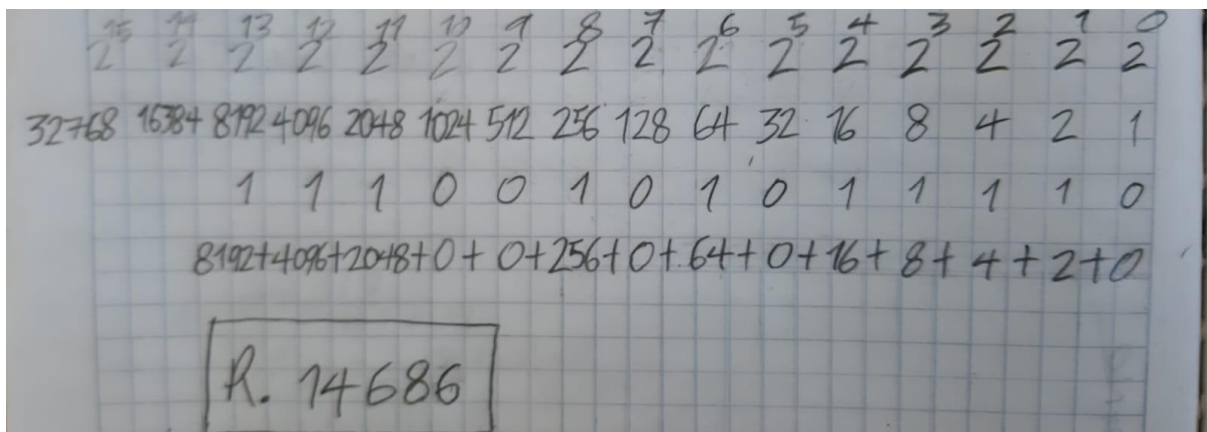 2¹⁵ 2¹⁴ 2¹³ 2¹² 2¹¹ 2¹⁰ 2⁹ 2⁸ 2⁷ 2⁶ 2⁵ 2⁴ 2³ 2² 2¹ 2⁰
32768 16384 8192 4096 2048 1024 512 256 128 64 32 16 8 4 2 1
1 1 1 0 0 1 0 1 0 1 1 1 1 0
8192+4096+2048+0+0+256+0+64+0+16+8+4+2+0
R. 14686